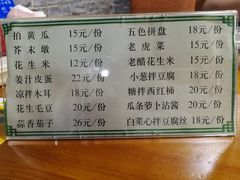 拍黄瓜 15元/份 五色拼盘 18元/份
芥末墩 15元/份 老虎菜 15元/份
花生米 12元/份 老醋花生米 15元/份
姜汁皮蛋 22元/份 小葱拌豆腐 18元/份
凉拌木耳 18元/份 糖拌西红柿 18元/份
花生毛豆 20元/份 瓜条萝卜沾酱 20元/份
蒜香茄子 26元/份 白菜心拌豆腐丝 18元/份